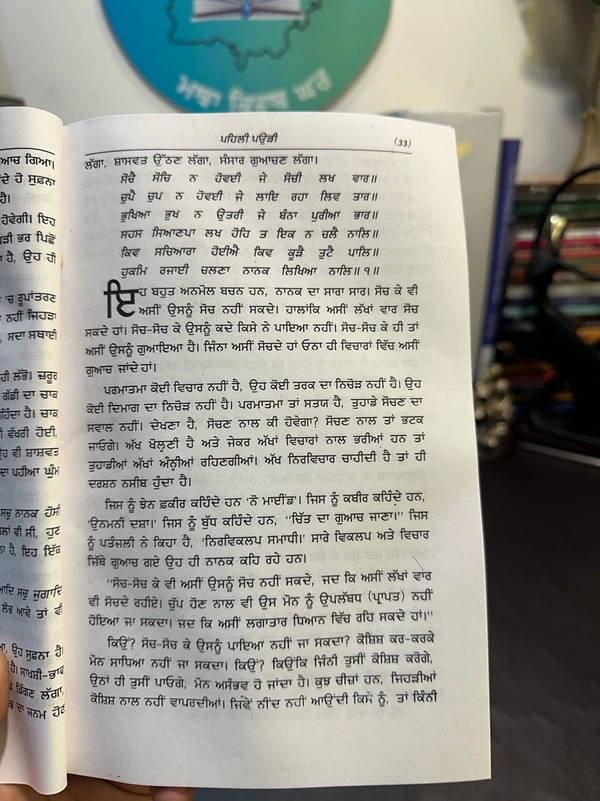 ਮਾਝਾ ਕਿਤਾਬ ਘਰ
ਪਹਿਲੀ ਪਉੜੀ
(33)
ਲੱਗਾ, ਸ਼ਾਸਵਤ ਉੱਠਣ ਲੱਗਾ, ਸੰਸਾਰ ਗੁਆਚਣ ਲੱਗਾ।
ਸੋਚੈ ਸੋਚਿ ਨ ਹੋਵਈ ਜੇ ਸੋਚੀ ਲਖ ਵਾਰ॥
ਚੁਪੈ ਚੁਪ ਨ ਹੋਵਈ ਜੇ ਲਾਇ ਰਹਾ ਲਿਵ ਤਾਰ॥
ਭੁਖਿਆ ਭੁਖ ਨ ਉਤਰੀ ਜੇ ਬੰਨਾ ਪੁਰੀਆ ਭਾਰ॥
ਸਹਸ ਸਿਆਣਪਾ ਲਖ ਹੋਹਿ ਤ ਇਕ ਨ ਚਲੈ ਨਾਲਿ॥
ਕਿਵ ਸਚਿਆਰਾ ਹੋਈਐ ਕਿਵ ਕੂੜੈ ਤੁਟੈ ਪਾਲਿ॥
ਹੁਕਮਿ ਰਜਾਈ ਚਲਣਾ ਨਾਨਕ ਲਿਖਿਆ ਨਾਲਿ॥੧॥
ਇਹ ਬਹੁਤ ਅਨਮੋਲ ਬਚਨ ਹਨ, ਨਾਨਕ ਦਾ ਸਾਰਾ ਸਾਰ। ਸੋਚ ਕੇ ਵੀ
ਅਸੀਂ ਉਸਨੂੰ ਸੋਚ ਨਹੀਂ ਸਕਦੇ। ਹਾਲਾਂਕਿ ਅਸੀਂ ਲੱਖਾਂ ਵਾਰ ਸੋਚ
ਸਕਦੇ ਹਾਂ। ਸੋਚ-ਸੋਚ ਕੇ ਉਸਨੂੰ ਕਦੇ ਕਿਸੇ ਨੇ ਪਾਇਆ ਨਹੀਂ। ਸੋਚ-ਸੋਚ ਕੇ ਹੀ ਤਾਂ
ਅਸੀਂ ਉਸਨੂੰ ਗੁਆਇਆ ਹੈ। ਜਿੰਨਾ ਅਸੀਂ ਸੋਚਦੇ ਹਾਂ ਓਨਾ ਹੀ ਵਿਚਾਰਾਂ ਵਿੱਚ ਅਸੀਂ
ਗੁਆਚ ਜਾਂਦੇ ਹਾਂ।
ਪਰਮਾਤਮਾ ਕੋਈ ਵਿਚਾਰ ਨਹੀਂ ਹੈ, ਉਹ ਕੋਈ ਤਰਕ ਦਾ ਨਿਚੋੜ ਨਹੀਂ ਹੈ। ਉਹ
ਕੋਈ ਦਿਮਾਗ ਦਾ ਨਿਚੋੜ ਨਹੀਂ ਹੈ। ਪਰਮਾਤਮਾ ਤਾਂ ਸਤਯ ਹੈ, ਤੁਹਾਡੇ ਸੋਚਣ ਦਾ
ਸਵਾਲ ਨਹੀਂ। ਦੇਖਣਾ ਹੈ, ਸੋਚਣ ਨਾਲ ਕੀ ਹੋਵੇਗਾ? ਸੋਚਣ ਨਾਲ ਤਾਂ ਭਟਕ
ਜਾਓਗੇ। ਅੱਖ ਖੋਲ੍ਹਣੀ ਹੈ ਅਤੇ ਜੇਕਰ ਅੱਖਾਂ ਵਿਚਾਰਾਂ ਨਾਲ ਭਰੀਆਂ ਹਨ ਤਾਂ
ਤੁਹਾਡੀਆਂ ਅੱਖਾਂ ਅੰਨ੍ਹੀਆਂ ਰਹਿਣਗੀਆਂ। ਅੱਖ ਨਿਰਵਿਚਾਰ ਚਾਹੀਦੀ ਹੈ ਤਾਂ ਹੀ
ਦਰਸ਼ਨ ਨਸੀਬ ਹੁੰਦਾ ਹੈ।
ਜਿਸ ਨੂੰ ਝੇਨ ਫ਼ਕੀਰ ਕਹਿੰਦੇ ਹਨ 'ਨੋ ਮਾਈਂਡ'। ਜਿਸ ਨੂੰ ਕਬੀਰ ਕਹਿੰਦੇ ਹਨ,
'ਉਨਮਨੀ ਦਸ਼ਾ।' ਜਿਸ ਨੂੰ ਬੁੱਧ ਕਹਿੰਦੇ ਹਨ, ''ਚਿੱਤ ਦਾ ਗੁਆਚ ਜਾਣਾ।'' ਜਿਸ
ਨੂੰ ਪਤੰਜਲੀ ਨੇ ਕਿਹਾ ਹੈ, 'ਨਿਰਵਿਕਲਪ ਸਮਾਧੀ।' ਸਾਰੇ ਵਿਕਲਪ ਅਤੇ ਵਿਚਾਰ
ਜਿੱਥੇ ਗੁਆਚ ਗਏ ਉਹ ਹੀ ਨਾਨਕ ਕਹਿ ਰਹੇ ਹਨ।
''ਸੋਚ-ਸੋਚ ਕੇ ਵੀ ਅਸੀਂ ਉਸਨੂੰ ਸੋਚ ਨਹੀਂ ਸਕਦੇ, ਜਦ ਕਿ ਅਸੀਂ ਲੱਖਾਂ ਵਾਰ
ਵੀ ਸੋਚਦੇ ਰਹੀਏ। ਚੁੱਪ ਹੋਣ ਨਾਲ ਵੀ ਉਸ ਮੌਨ ਨੂੰ ਉਪਲੱਬਧ (ਪ੍ਰਾਪਤ) ਨਹੀਂ
ਹੋਇਆ ਜਾ ਸਕਦਾ। ਜਦ ਕਿ ਅਸੀਂ ਲਗਾਤਾਰ ਧਿਆਨ ਵਿੱਚ ਰਹਿ ਸਕਦੇ ਹਾਂ।''
ਕਿਉਂ? ਸੋਚ-ਸੋਚ ਕੇ ਉਸਨੂੰ ਪਾਇਆ ਨਹੀਂ ਜਾ ਸਕਦਾ? ਕੋਸ਼ਿਸ਼ ਕਰ-ਕਰਕੇ
ਮੌਨ ਸਾਧਿਆ ਨਹੀਂ ਜਾ ਸਕਦਾ। ਕਿਉਂ? ਕਿਉਂਕਿ ਜਿੰਨੀ ਤੁਸੀਂ ਕੋਸ਼ਿਸ਼ ਕਰੋਗੇ,
ਉਨਾਂ ਹੀ ਤੁਸੀਂ ਪਾਓਗੇ, ਮੌਨ ਅਸੰਭਵ ਹੋ ਜਾਂਦਾ ਹੈ। ਕੁਝ ਚੀਜ਼ਾਂ ਹਨ, ਜਿਹੜੀਆਂ
ਕੋਸ਼ਿਸ਼ ਨਾਲ ਨਹੀਂ ਵਾਪਰਦੀਆਂ। ਜਿਵੇਂ ਨੀਂਦ ਨਹੀਂ ਆਉਂਦੀ ਕਿਸੇ ਨੂੰ, ਤਾਂ ਕਿੰਨੀ